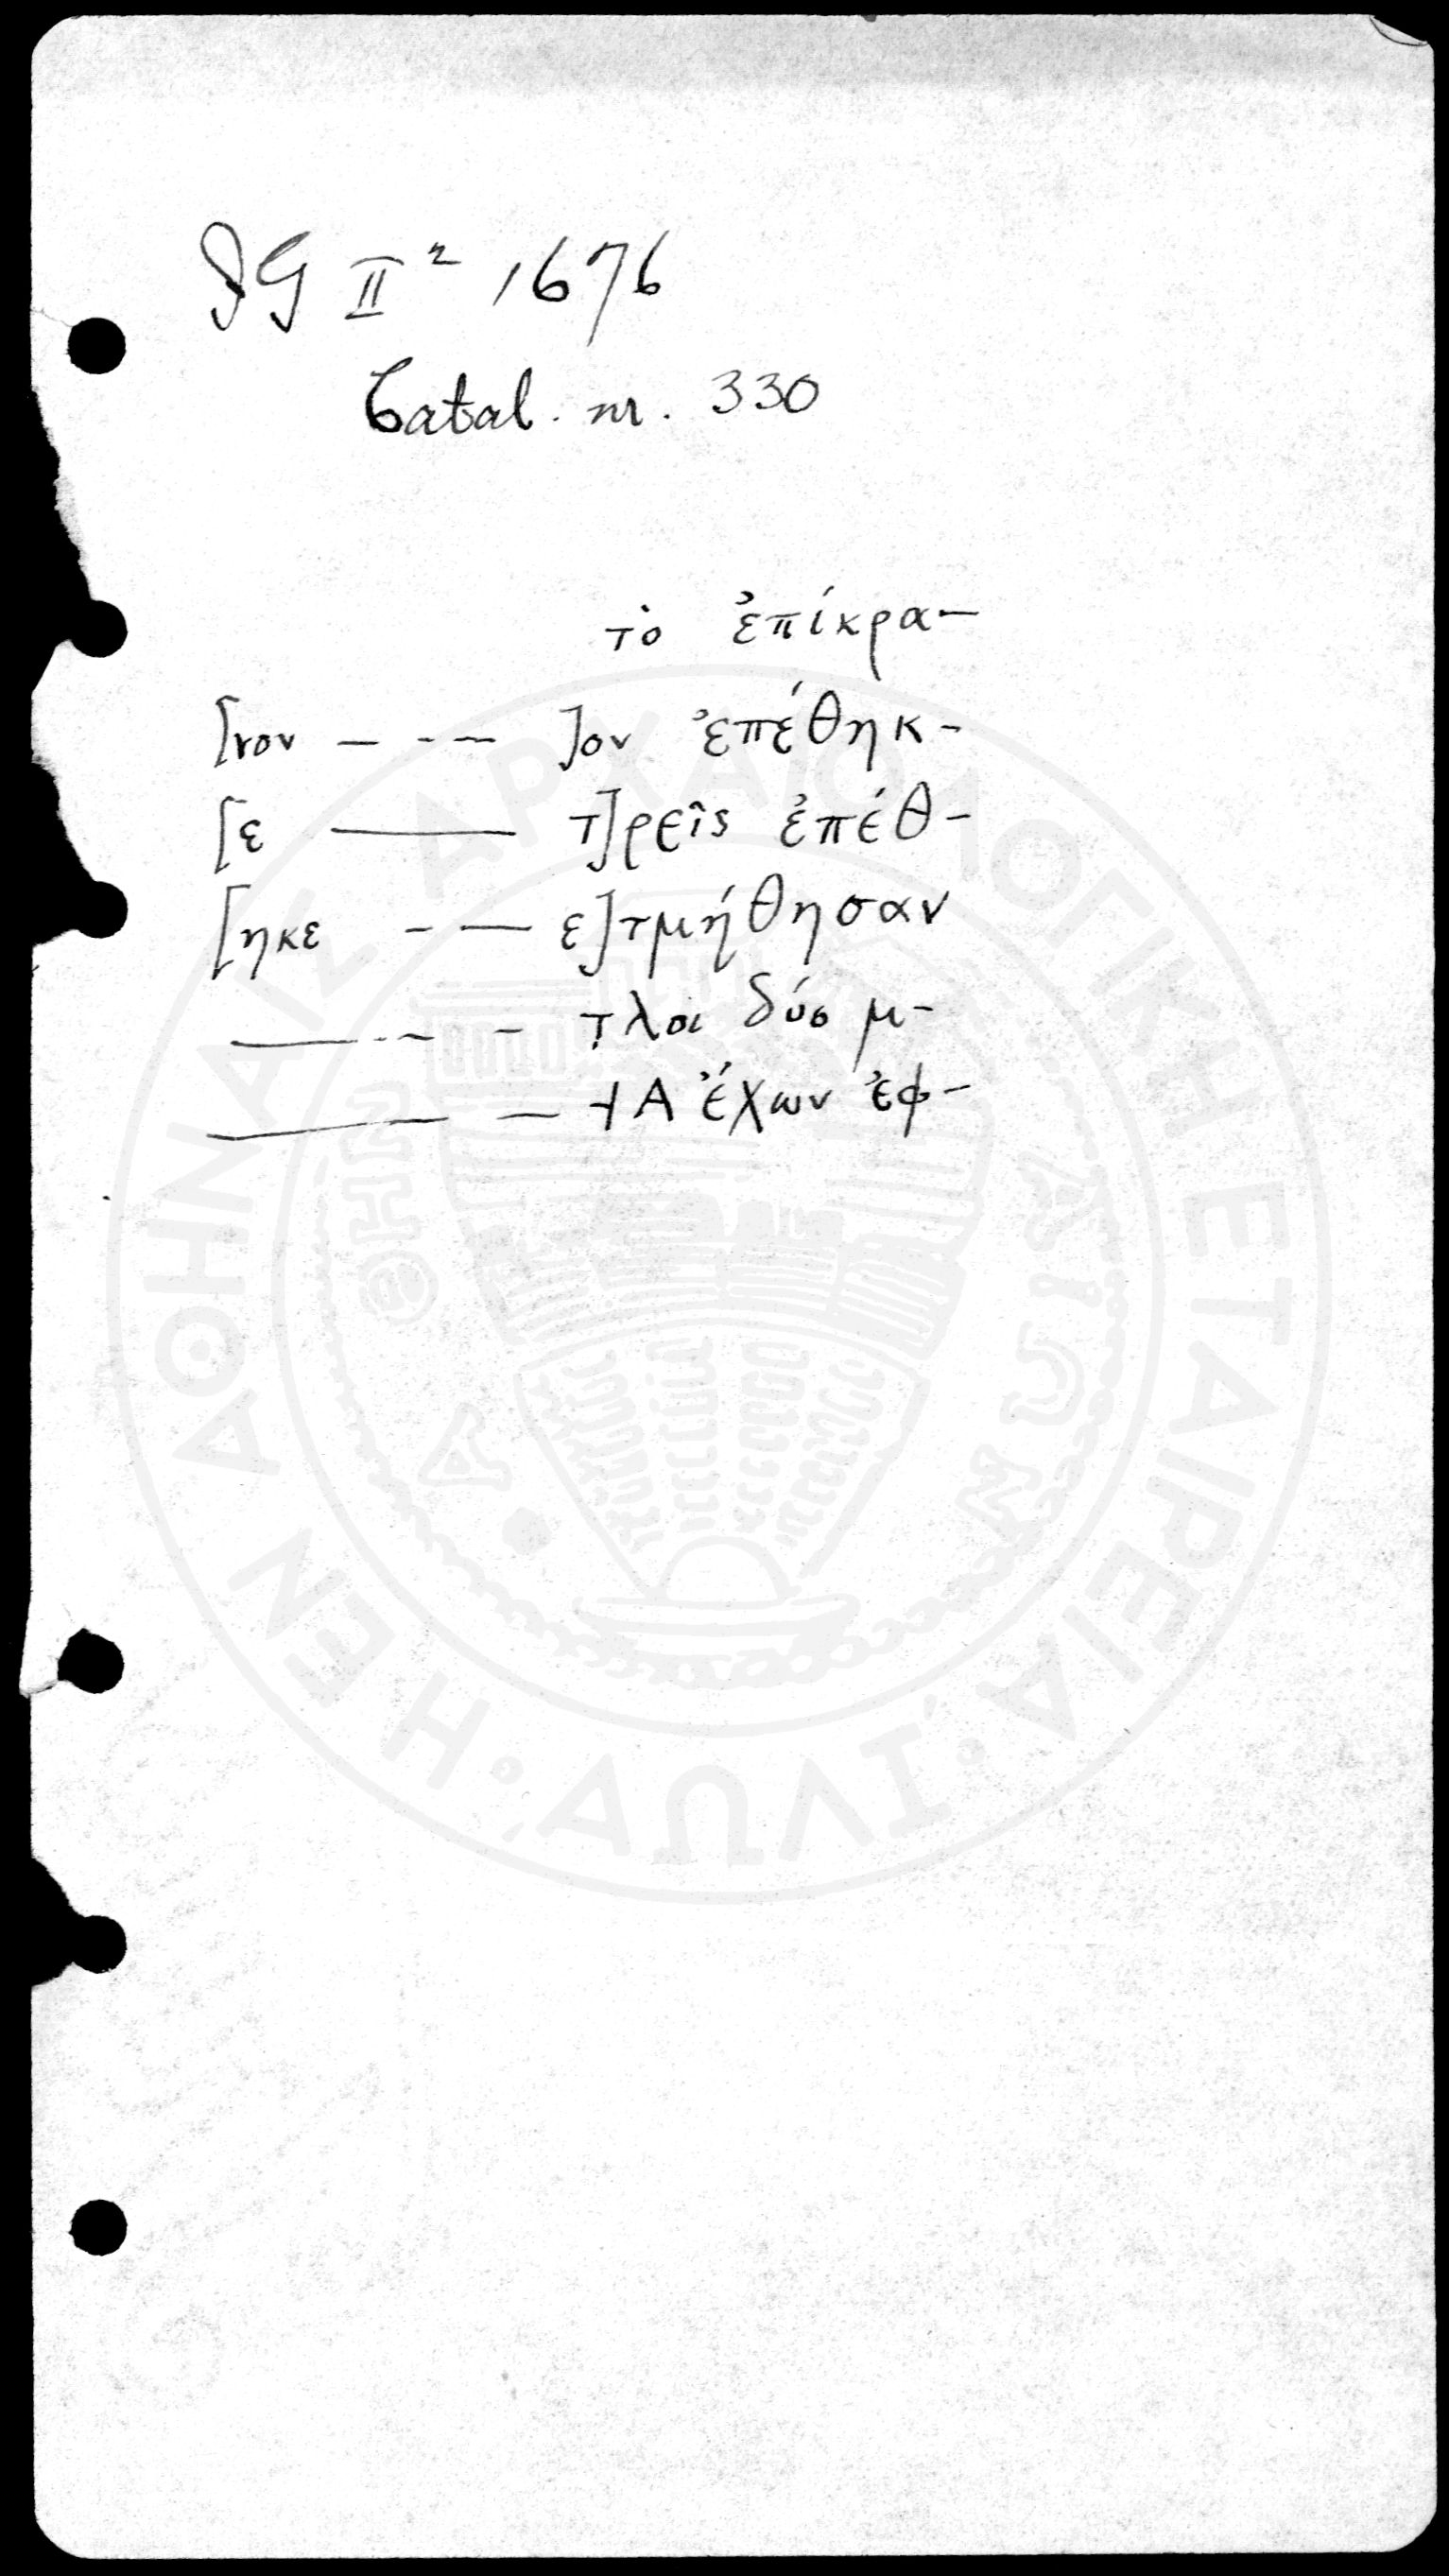 IG II² 1676
Catal. nr. 330
τὸ ἐπίκρα—
[νον — - — ]ον ἐπέθηκ-
[ε —— τ]ρεῖς ἐπέθ-
[ηκε - — ε]τμήθησαν
—— - - - τλοι δύο μ-
—— — ⊣Α ἔχων ἐφ-
Η ΕΝ ΑΘΗΝΑΙΣ ΑΡΧΑΙΟΛΟΓΙΚΗ ΕΤΑΙΡΕΙΑ